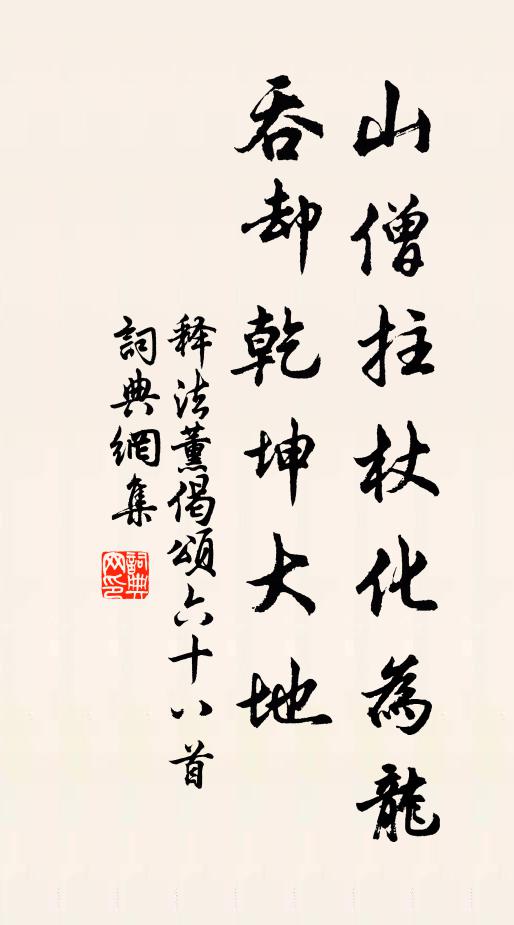 山僧拄杖化為龍
吞却乾坤大地
释法薰偈頌六十八首
詞典網集
詞典网印